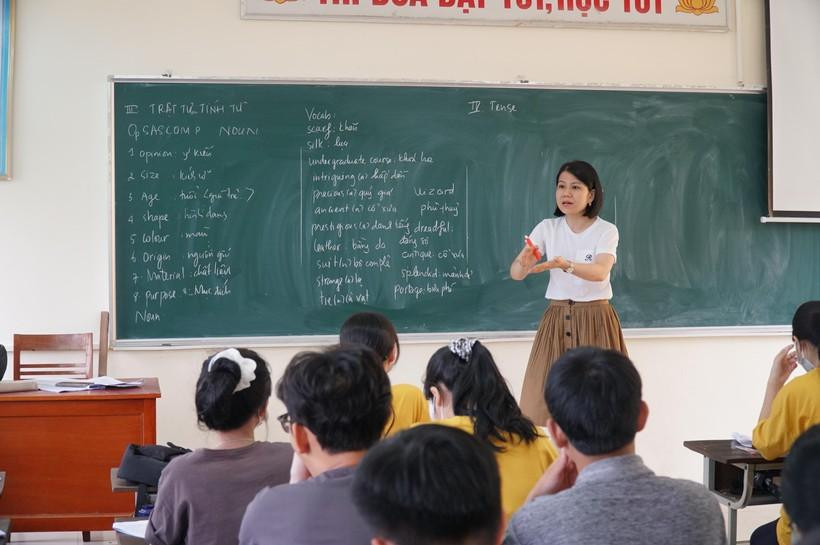 THI ĐUA DẠY TỐT, HỌC TỐT
III TRẬT TỰ TÍNH TỪ
Op SASCOMP NOUN
1 opinion : ý kiến
2 Size :
3 Age : tuổi
4 shape : hình dáng
5 colour : màu
6 Origin : nguồn gốc
7. Material : chất liệu
8 purpose : Mục đích
Noun
Vocab :
scarf : khăn
silk : lụa
undergraduate course : khoá
intriguing (a) hấp dẫn
precious (a) quý giá
ancient (a) cổ xưa
prestigious (a) danh tiếng
leather : bằng da
suit (n) bộ comple
strange (a) lạ
tie (n) cà vạt
wizard
phù thuỷ
dreadful :
đáng sợ
antique : cổ xưa
splendid :
IV Tense